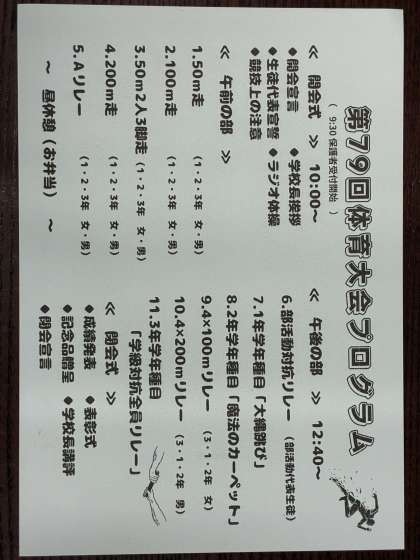 第79回体育大会プログラム
（ 9:30 保護者受付開始 ）
≪ 開会式 ≫ 10:00～
◆開会宣言 ◆学校長挨拶
◆生徒代表宣誓 ◆ラジオ体操
◆競技上の注意
≪ 午前の部 ≫
1.50m走 （1・2・3年 女・男）
2.100m走 （1・2・3年 女・男）
3.50m2人3脚走 （1・2・3年 女・男）
4.200m走 （1・2・3年 女・男）
5.Aリレー （1・2・3年 女・男）
～ 昼休憩（お弁当） ～
≪ 午後の部 ≫ 12:40～
6.部活動対抗リレー （部活動代表生徒）
7.1年学年種目「大縄跳び」
8.2年学年種目「魔法のカーペット」
9.4×100mリレー （3・1・2年 女）
10.4×200mリレー （3・1・2年 男）
11.3年学年種目
「学級対抗全員リレー」
≪ 閉会式 ≫
◆成績発表 ◆表彰式
◆記念品贈呈 ◆学校長講評
◆閉会宣言